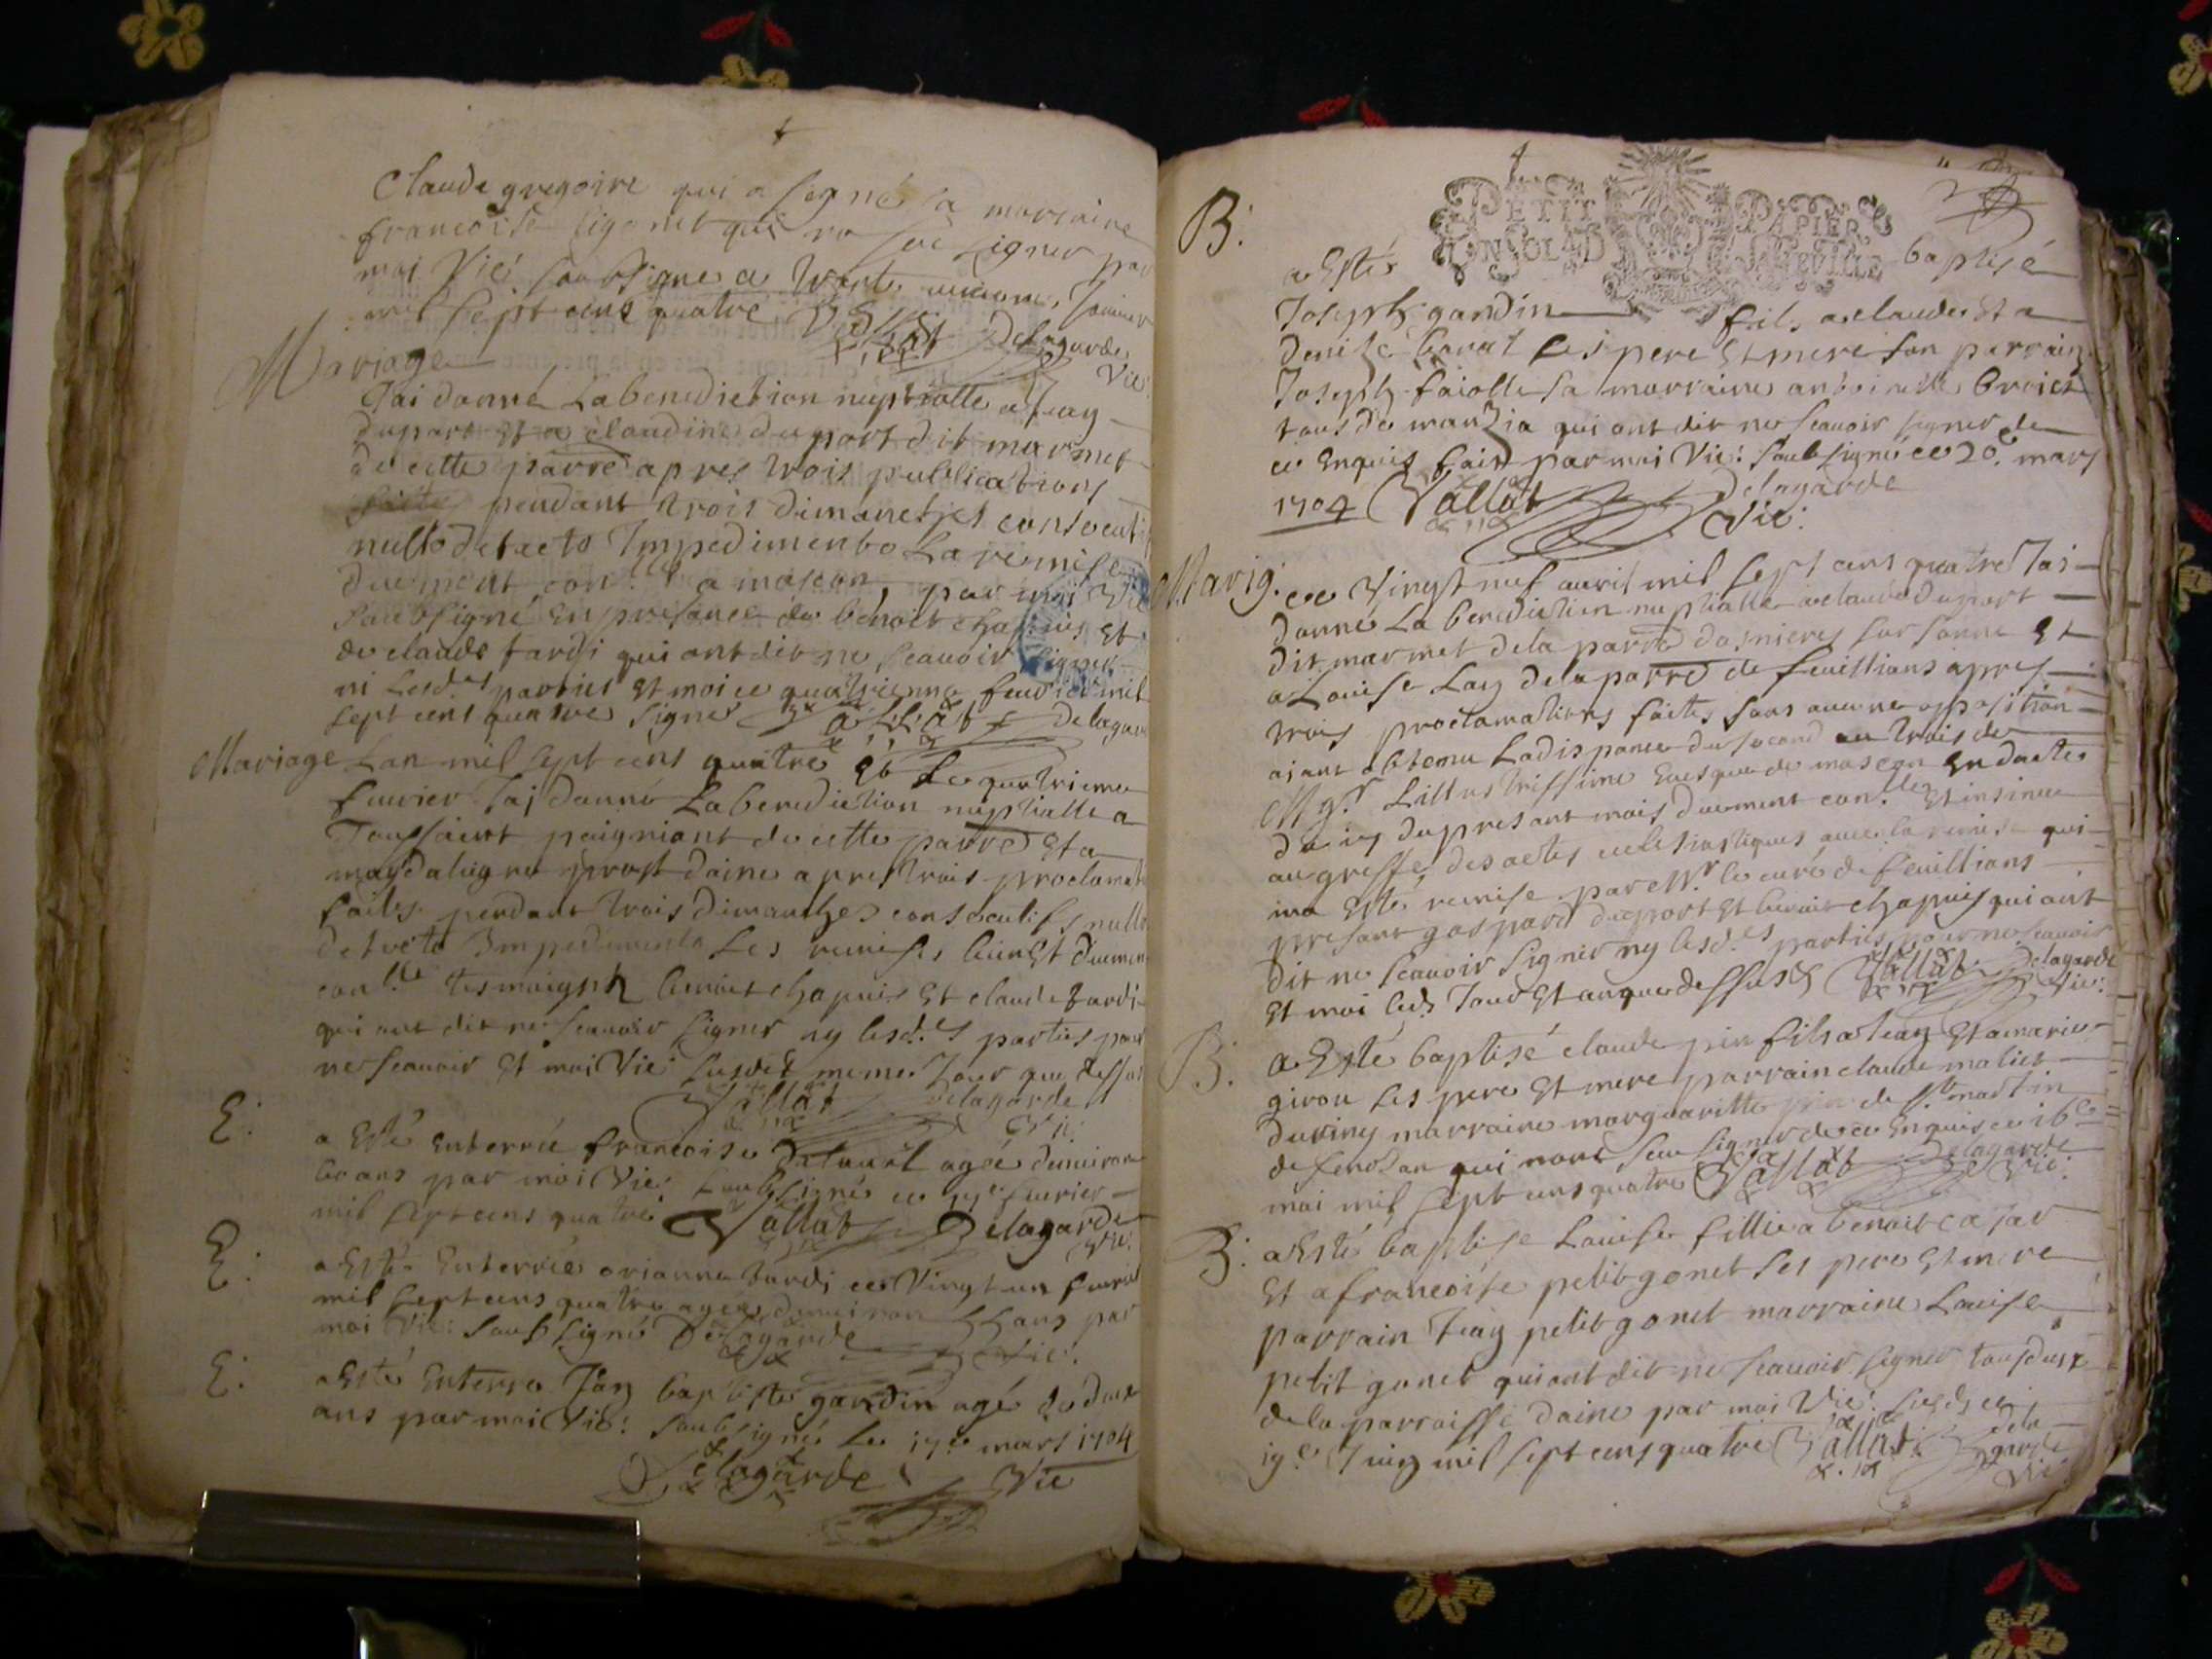 Claude gregoire qui a signé sa marraine
francoise ligonet qui na sceu signer par
moi Vic: soubsigne ce trente uniesme Januier
mil sept cens quatre Vallat Delagarde
Vic:
Mariage
J'ai donné La benediction nuptialle a Jean
duport et a claudine duport dit marmet
de cette parre apres trois publications
faites pendant trois dimanches consecutifs
nullo detecto Impedimento La remise
duement con.llée a mascon, par moi Vic
soubsigné En presance de benoit chapuis Et
de claude tardi qui ont dit ne scauoir signer
ni Lesd.es parties Et moi ce quatrieme feurier mil
sept cens quatre signes Vallat Delagarde
Mariage Lan mil sept cens quatre Et Le quatrieme
feurier J'ai donné La benediction nuptialle a
Toussaint paigniant de cette parre Et a
magdaleigne prost daine apres trois proclamat
faites pendant trois dimanches consecutifs nullo
detecto Impedimento Les remises Et duemen
con.llée tesmoigns benoit chapuis Et claude tardi
qui ont dit ne scauoir signer ny lesd.es parties pour
ne scauoir Et moi Vic: susdit meme Jour que dessus
Vallat delagarde
Vic:
E: a Esté Enterrée francoise agée denuiron
60 ans par moi Vic: soubsigné ce feurier
mil sept cens quatre Vallat Delagarde
Vic:
E: a Esté Enterrée orianne tardi ce Vingt un feurier
mil sept cens quatre agée denuiron ans par
moi Vic: soubsigné Delagarde Vic:
E: a Esté Enterre Jan baptiste gardin agé de deux
ans par moi Vic: soubsigné Le 17e mars 1704
Delagarde Vic
B:
PETIT PAPIER
a Esté baptisé
Joseph gandin fils a claude Et a
denize barat ses pere Et mere son parrain
Joseph faiolle sa marraine antoinette broiet
tous de manzia qui ont dit ne scauoir signer de
ce Enquis fait par moi Vic: soubsigné ce 20e mars
1704 Vallat Delagarde
Vic:
Marig: ce Vingt neuf auril mil sept cens quatre J'ai
donné La benediction nuptialle a claude duport
dit marmet de la parre dasnieres sur sonne Et
a Louise Lay de la parre de feuillians apres
trois proclamations faites sans aucune opposition
aiant obtenu La dispance du second au trois de
Mg.r Lillustrissime Euesque de mascon En datte
du du presant mois duement con.llée Et insinuee
au greffe des actes eclesiastiques auec la remise qui
ma Esté remise par Mr le curé de feuillians
presant gaspard duport Et benoit chapuis qui ont
dit ne scauoir signer ny lesd.es parties pour ne scauoir
Et moi led. Jour Et an que dessus Vallat Delagarde
Vic:
B: a Esté baptisé claude pin fils a Jean Et a marie
girou ses pere Et mere parrain claude matiet
marraine marguaritte pin de st martin
de senozan qui nont sceu signer de ce Enquis ce 16e
mai mil sept cens quatre Vallat Delagarde
Vic:
B: a Esté baptise Louise fillie a benoit cajar
Et a francoise petitgonet ses pere Et mere
parrain Jean petitgonet marraine Louise
petit gonet qui ont dit ne scauoir signer tous deux
de la parroisse daine par moi Vic: susd. ce
19e Juin mil sept cens quatre Vallat dela
garde
Vic: